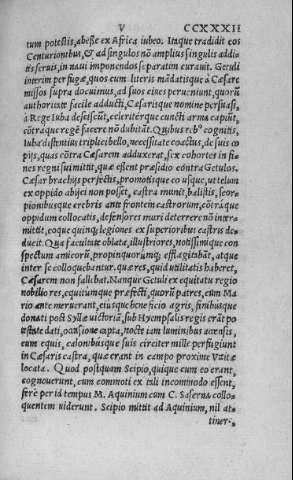 V CCXXXII
tum potestis, abesse ex Africa iubeo. Itaque tradidit eos
Centurionibus, & ad singulos nō amplius singulis additis seruis, in naui imponendos separatim curauit. Getuli
interim perfugæ, quos cum literis mādatisque à Cæsare
missos supra docuimus, ad suos ciues perueniunt, quorū
authoritate facile adducti, Cæsarisque nomine persuasi,
à Rege Iuba desciscūt, celeriterque cuncti arma capiūt,
cōtráque regē facere nō dubitāt. Quibus rebꝰ cognitis,
Iuba distentus triplici bello, necessitate coactus, de suis copijs, quas cōtra Cæsarem adduxerat, sex cohortes in fines regni sui mittit, quæ essent præsidio contra Getulos.
Cæsar brachijs perfectis, promotisque eo usque, ut telum
ex oppido abijci non posset, castra munit, balistis, scorpionibusque crebris ante frontem castrorum, cōtráque
oppidum collocatis, defensores muri deterrere nō intermittit, eoque quinq; legiones ex superioribus castris deducit. Qua facultate oblata, illustriores, notissimique conspectum amicorū, propinquorūmq; efflagitabāt, atque
inter se colloquebantur. quæ res, quid utilitatis haberet,
Cæsarem non fallebat. Nanque Getuli ex equitatu regio
nobiliores, equitúmque præfecti, quorū patres, cum Mario ante meruerant, eiusque beneficio agris, finibusque
donati post Syllæ victoriā, sub Hyempsalis regis erāt potestate dati, occasione capta, nocte iam luminibus accensis,
cum equis, calonibusque suis circiter mille perfugiunt
in Cæsaris castra, quæ erant in campo proxime Vzitæ
locata. Quod postquam Scipio, quique cum eo erant,
cognouerunt, cum commoti ex tali incommodo essent,
ferè per id tempus M. Aquinium cum C. Saserna colloquentem uiderunt. Scipio mittit ad Aquinium, nil at-
tiner-